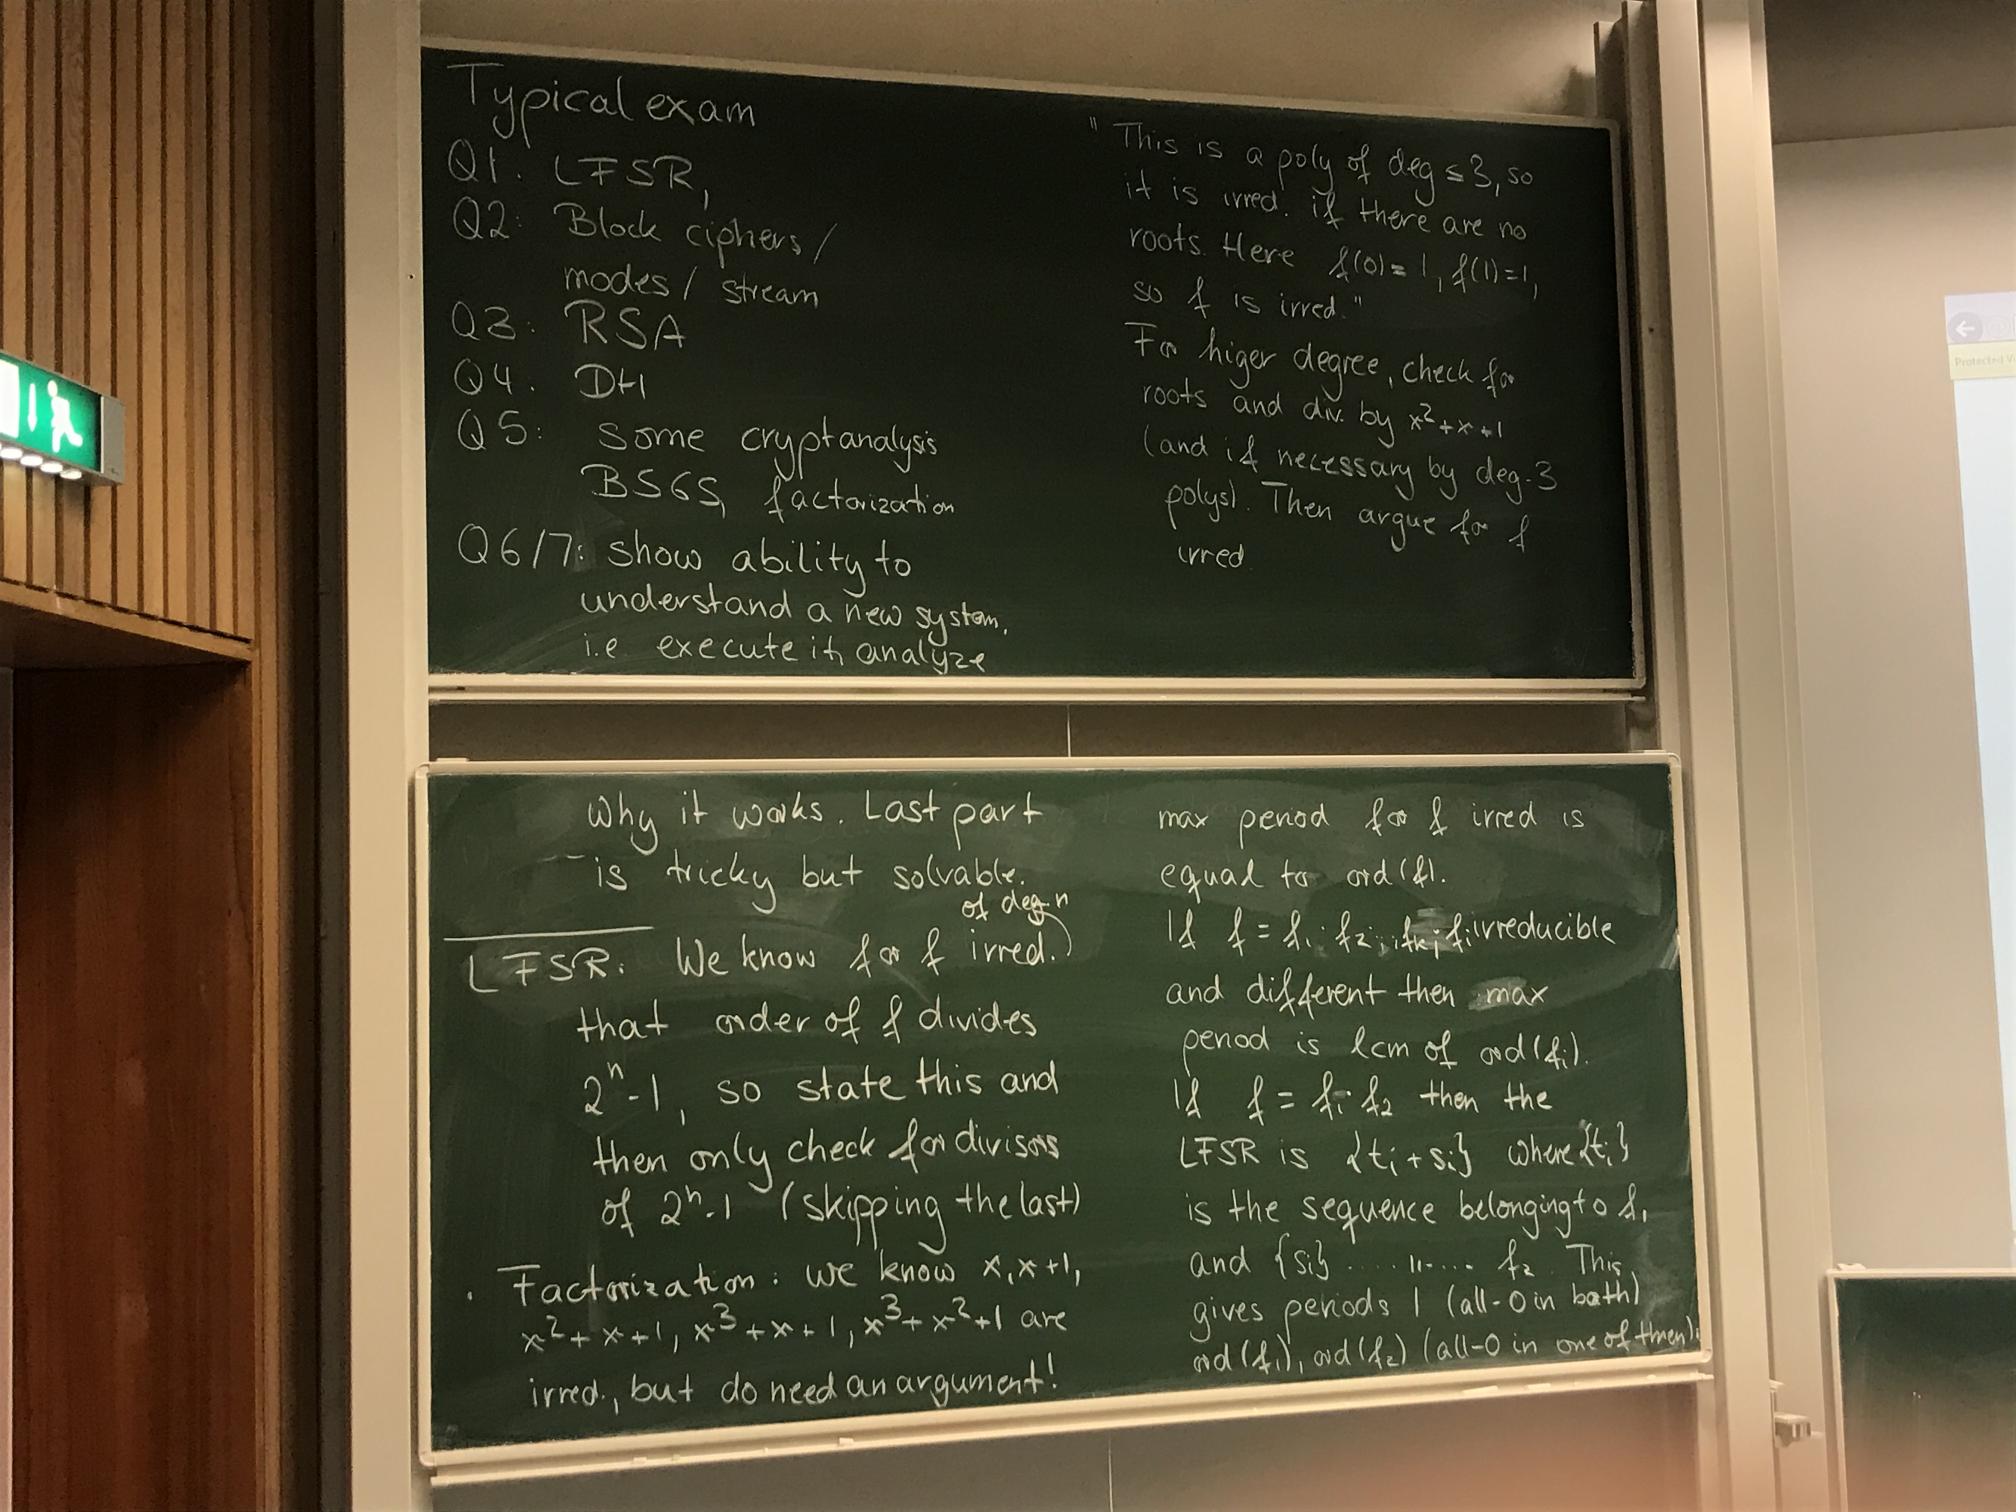 Typical exam
Q1. LFSR,
Q2: Block ciphers/
modes/ stream
Q3: RSA
Q4. DH
Q5: some cryptanalysis
BSGS, factorization
Q6/7: show ability to
understand a new system,
i.e execute it, analyze
why it works. Last part
is tricky but solvable.
of deg n
LFSR: We know for f irred.
that order of f divides
2^n-1, so state this and
then only check for divisors
of 2^n-1 (skipping the last)
. Factorization: we know x, x+1,
x²+x+1, x³+x+1, x³+x²+1 are
irred., but do need an argument!
"This is a poly of deg ≤3, so
it is irred. if there are no
roots. Here f(0)=1, f(1)=1,
so f is irred."
For higer degree, check for
roots and div. by x²+x+1
(and if necessary by deg-3
polys). Then argue for f
irred
max period for f irred is
equal to ord(f).
If f = f₁·f₂...fₖ; fᵢ irreducible
and different then max
period is lcm of ord(fᵢ).
If f = f₁·f₂ then the
LFSR is {tᵢ+sᵢ} where {tᵢ}
is the sequence belonging to f₁
and {sᵢ} ....."..... f₂. This
gives periods 1 (all-0 in both)
ord(f₁), ord(f₂) (all-0 in one of them);
Protected V